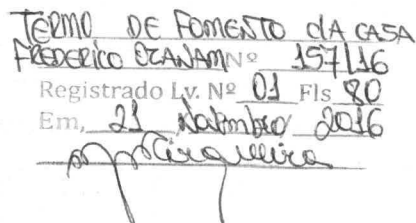 TERMO DE FOMENTO dA CASA
FREDERICO OZANAM Nº 157/16
Registrado Lv. Nº 01 Fls 80
Em, 21 Novembro 2016